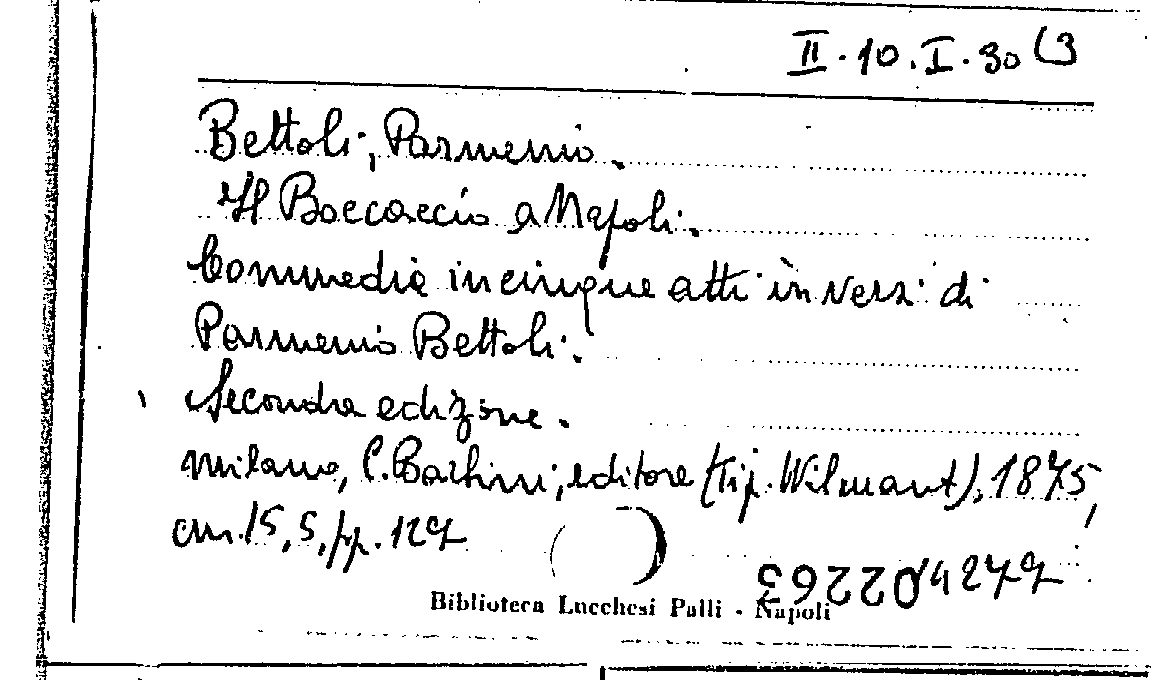 II.10.I.30(3
Bettoli, Parmenio.
Il Boccaccio a Napoli.
Commedia in cinque atti in versi di
Parmenio Bettoli.
Seconda edizione.
Milano, C. Barbini, editore (tip. Wilmant), 1875,
cm. 15,5, pp. 127
Biblioteca Lucchesi Palli - Napoli